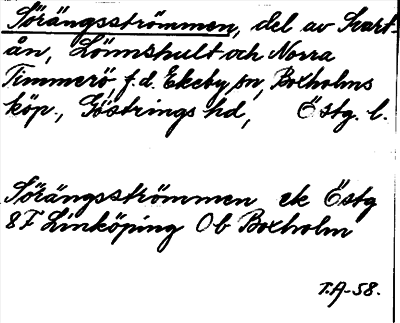 Sörängsströmmen, del av Svart-
ån, Lönnshult och Norra
Timmerö, f.d. Ekeby sn, Boxholms
köp., Göstrings hd, Östg. l.
Sörängsströmmen ek Östg
8F Linköping Ob Boxholm
T.A-58.